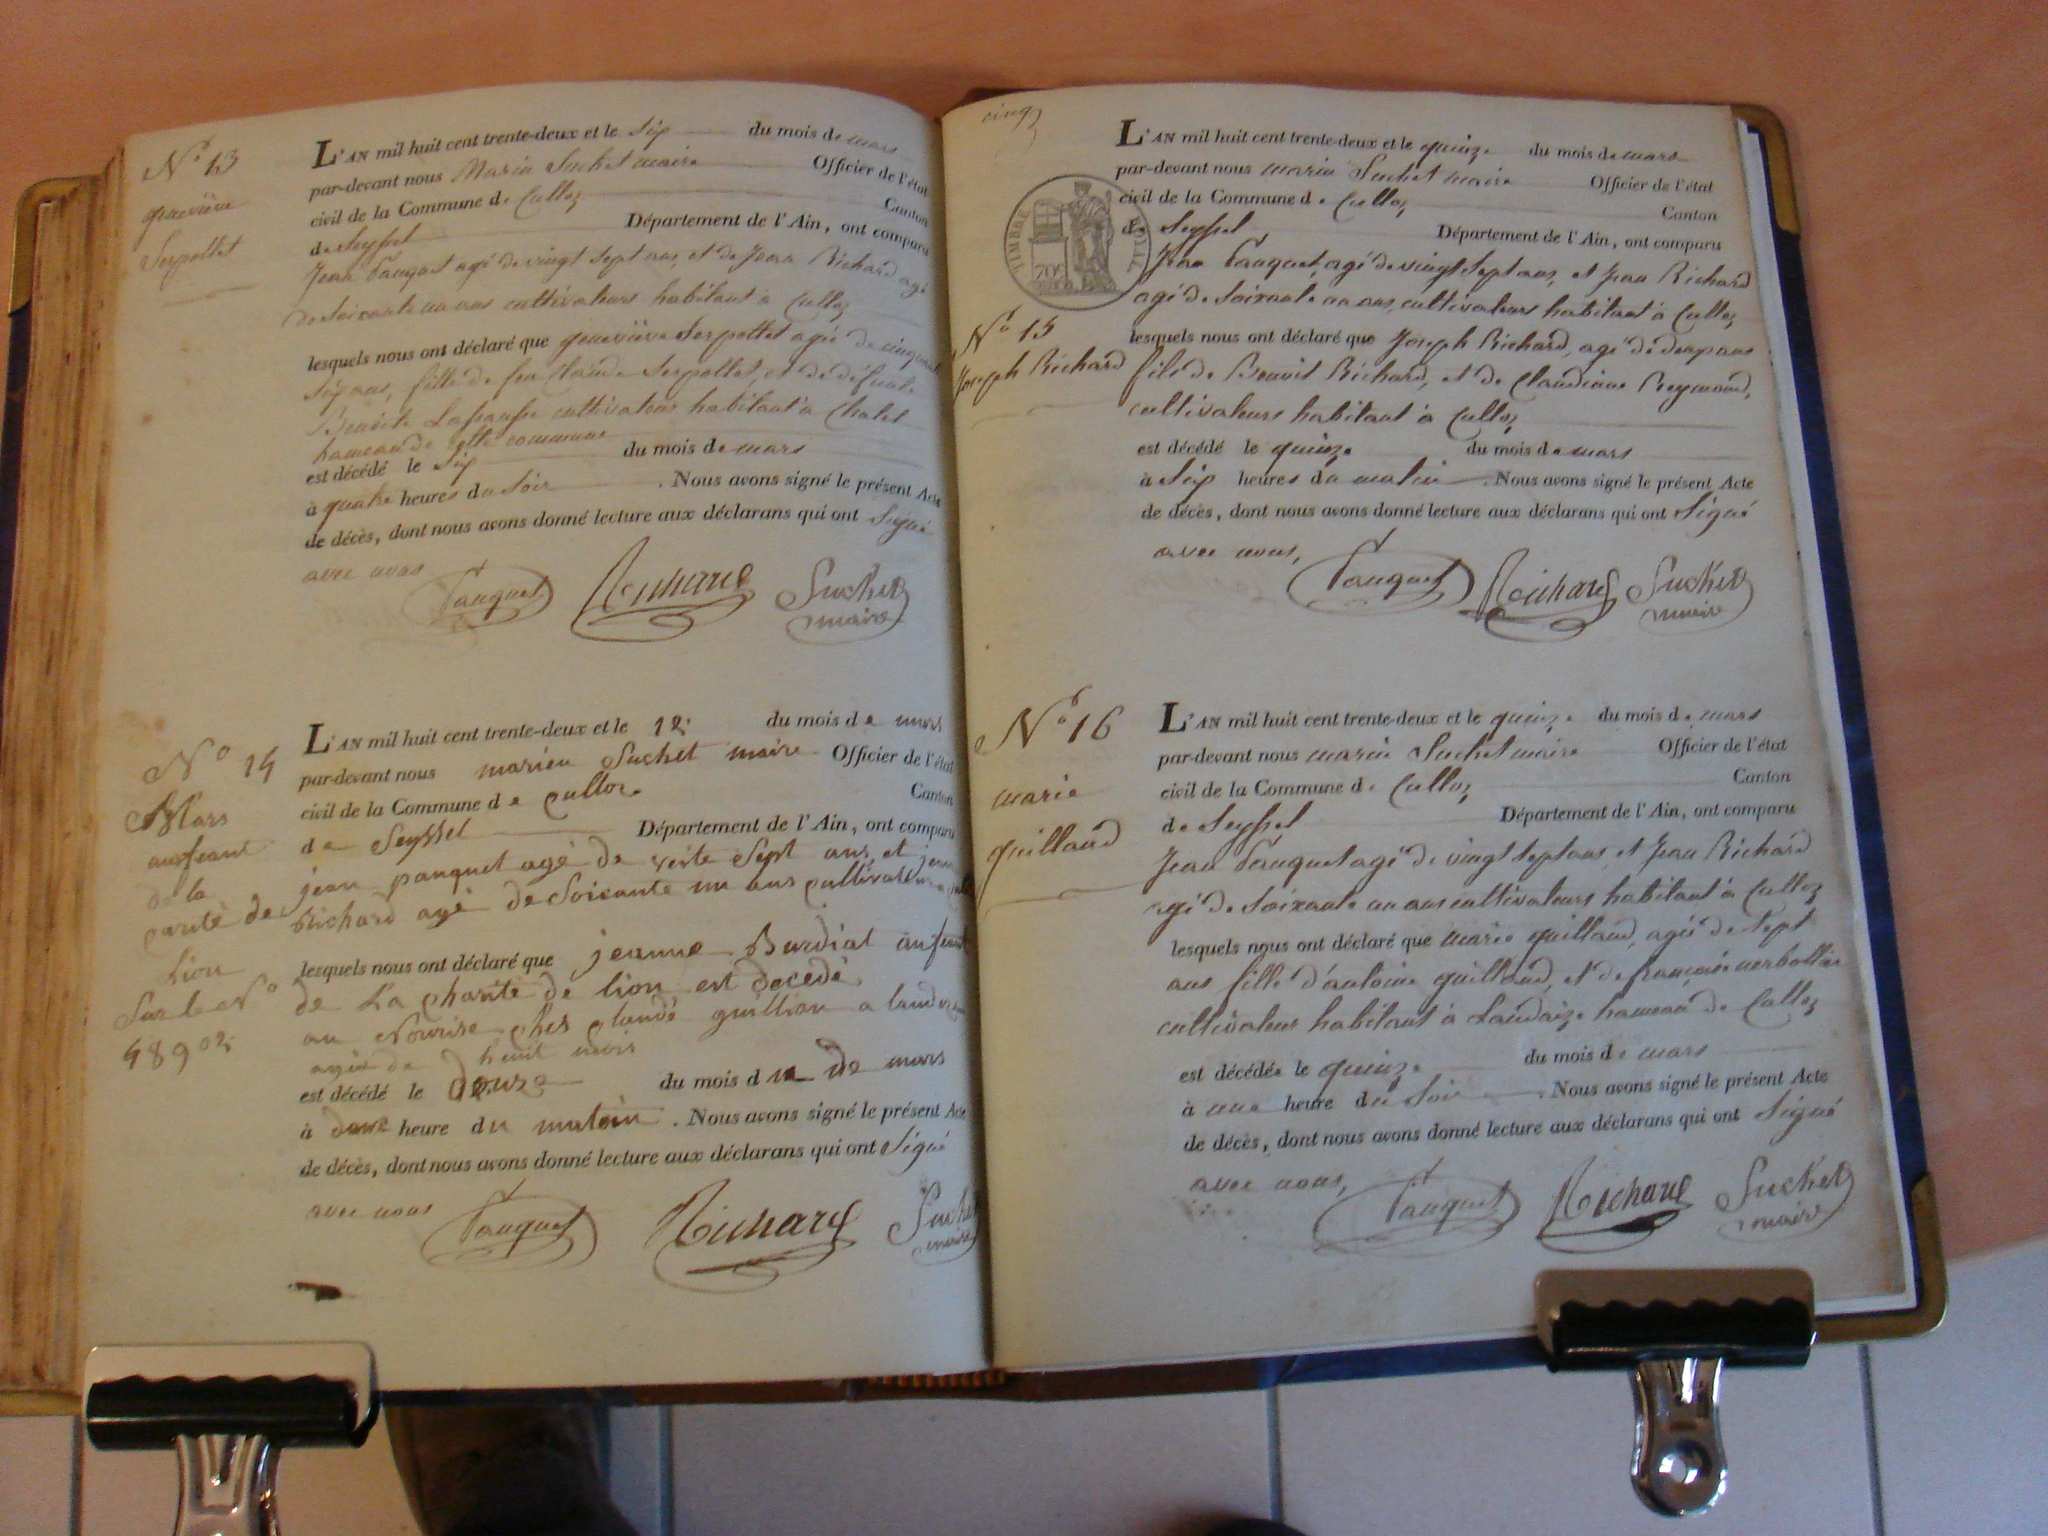 N° 13
geneviève
Serpollet
L'AN mil huit cent trente-deux et le Six du mois de mars
par-devant nous Marin Suchet maire Officier de l'état
civil de la Commune de Culloz Canton
de Seyssel Département de l'Ain, ont comparu
Jean Pauquet agé de vingt Sept ans, et de Jean Richard agé
de Soixante un ans cultivateurs habitant à Culloz
lesquels nous ont déclaré que geneviève Serpollet agée de cinquante
Six ans, fille de feu Claude Serpollet, et de défunte
Benoite cultivateurs habitant à Chatel
hameau de cette commune
est décédé le Six du mois de mars
à quatre heures du Soir . Nous avons signé le présent Acte
de décès, dont nous avons donné lecture aux déclarans qui ont Signé
avec nous
Pauquet Richard Suchet
maire
N° 14
Mars
anfeant
de la
carité de
Lion
Sur le N°
L'AN mil huit cent trente-deux et le 12 du mois de mars
par-devant nous marien Suchet maire Officier de l'état
civil de la Commune de culloz Canton
de Seyssel Département de l'Ain, ont comparu
jean pauquet agé de vente Sept ans et jean
Richard agé de Soicante un ans cultivateur a
lesquels nous ont déclaré que jeanne Burdiat anfeant
de La charité de lion est decedé
au Nourise ches claudé guillion a
agée de huit mois
est décédé le douze du mois du de mars
à heure du matain . Nous avons signé le présent Acte
de décès, dont nous avons donné lecture aux déclarans qui ont Signé
avec nous
Pauquet Richard Suchet
maire
cinq
TIMBRE ROYAL
70c
L'AN mil huit cent trente-deux et le quinze du mois de mars
par-devant nous marin Suchet maire Officier de l'état
civil de la Commune de Culloz Canton
de Seyssel Département de l'Ain, ont comparu
Jean Pauquet, agé de vingt Sept ans, et Jean Richard
agé de Soixante un ans, cultivateurs habitant à Culloz
N° 15
Joseph Richard
lesquels nous ont déclaré que Joseph Richard, agé de deux ans
fils de Benoit Richard, et de Claudine Reymond,
cultivateurs habitant à Culloz
est décédé le quinze du mois de mars
à Six heures du matin . Nous avons signé le présent Acte
de décès, dont nous avons donné lecture aux déclarans qui ont Signé
avec nous,
Pauquet Richard Suchet
maire
N° 16
marie
guilland
L'AN mil huit cent trente-deux et le quinze du mois de mars
par-devant nous marin Suchet maire Officier de l'état
civil de la Commune de Culloz Canton
de Seyssel Département de l'Ain, ont comparu
Jean Pauquet agé de vingt Sept ans, et Jean Richard
agé de Soixante un ans cultivateurs habitant à Culloz
lesquels nous ont déclaré que marie guilland, agée de Sept
ans fille d'antoine guilland, et de françoise
cultivateurs habitant à Landaize hameau de Culloz
est décédée le quinze du mois de mars
à une heure du Soir . Nous avons signé le présent Acte
de décès, dont nous avons donné lecture aux déclarans qui ont Signé
avec nous,
Pauquet Richard Suchet
maire